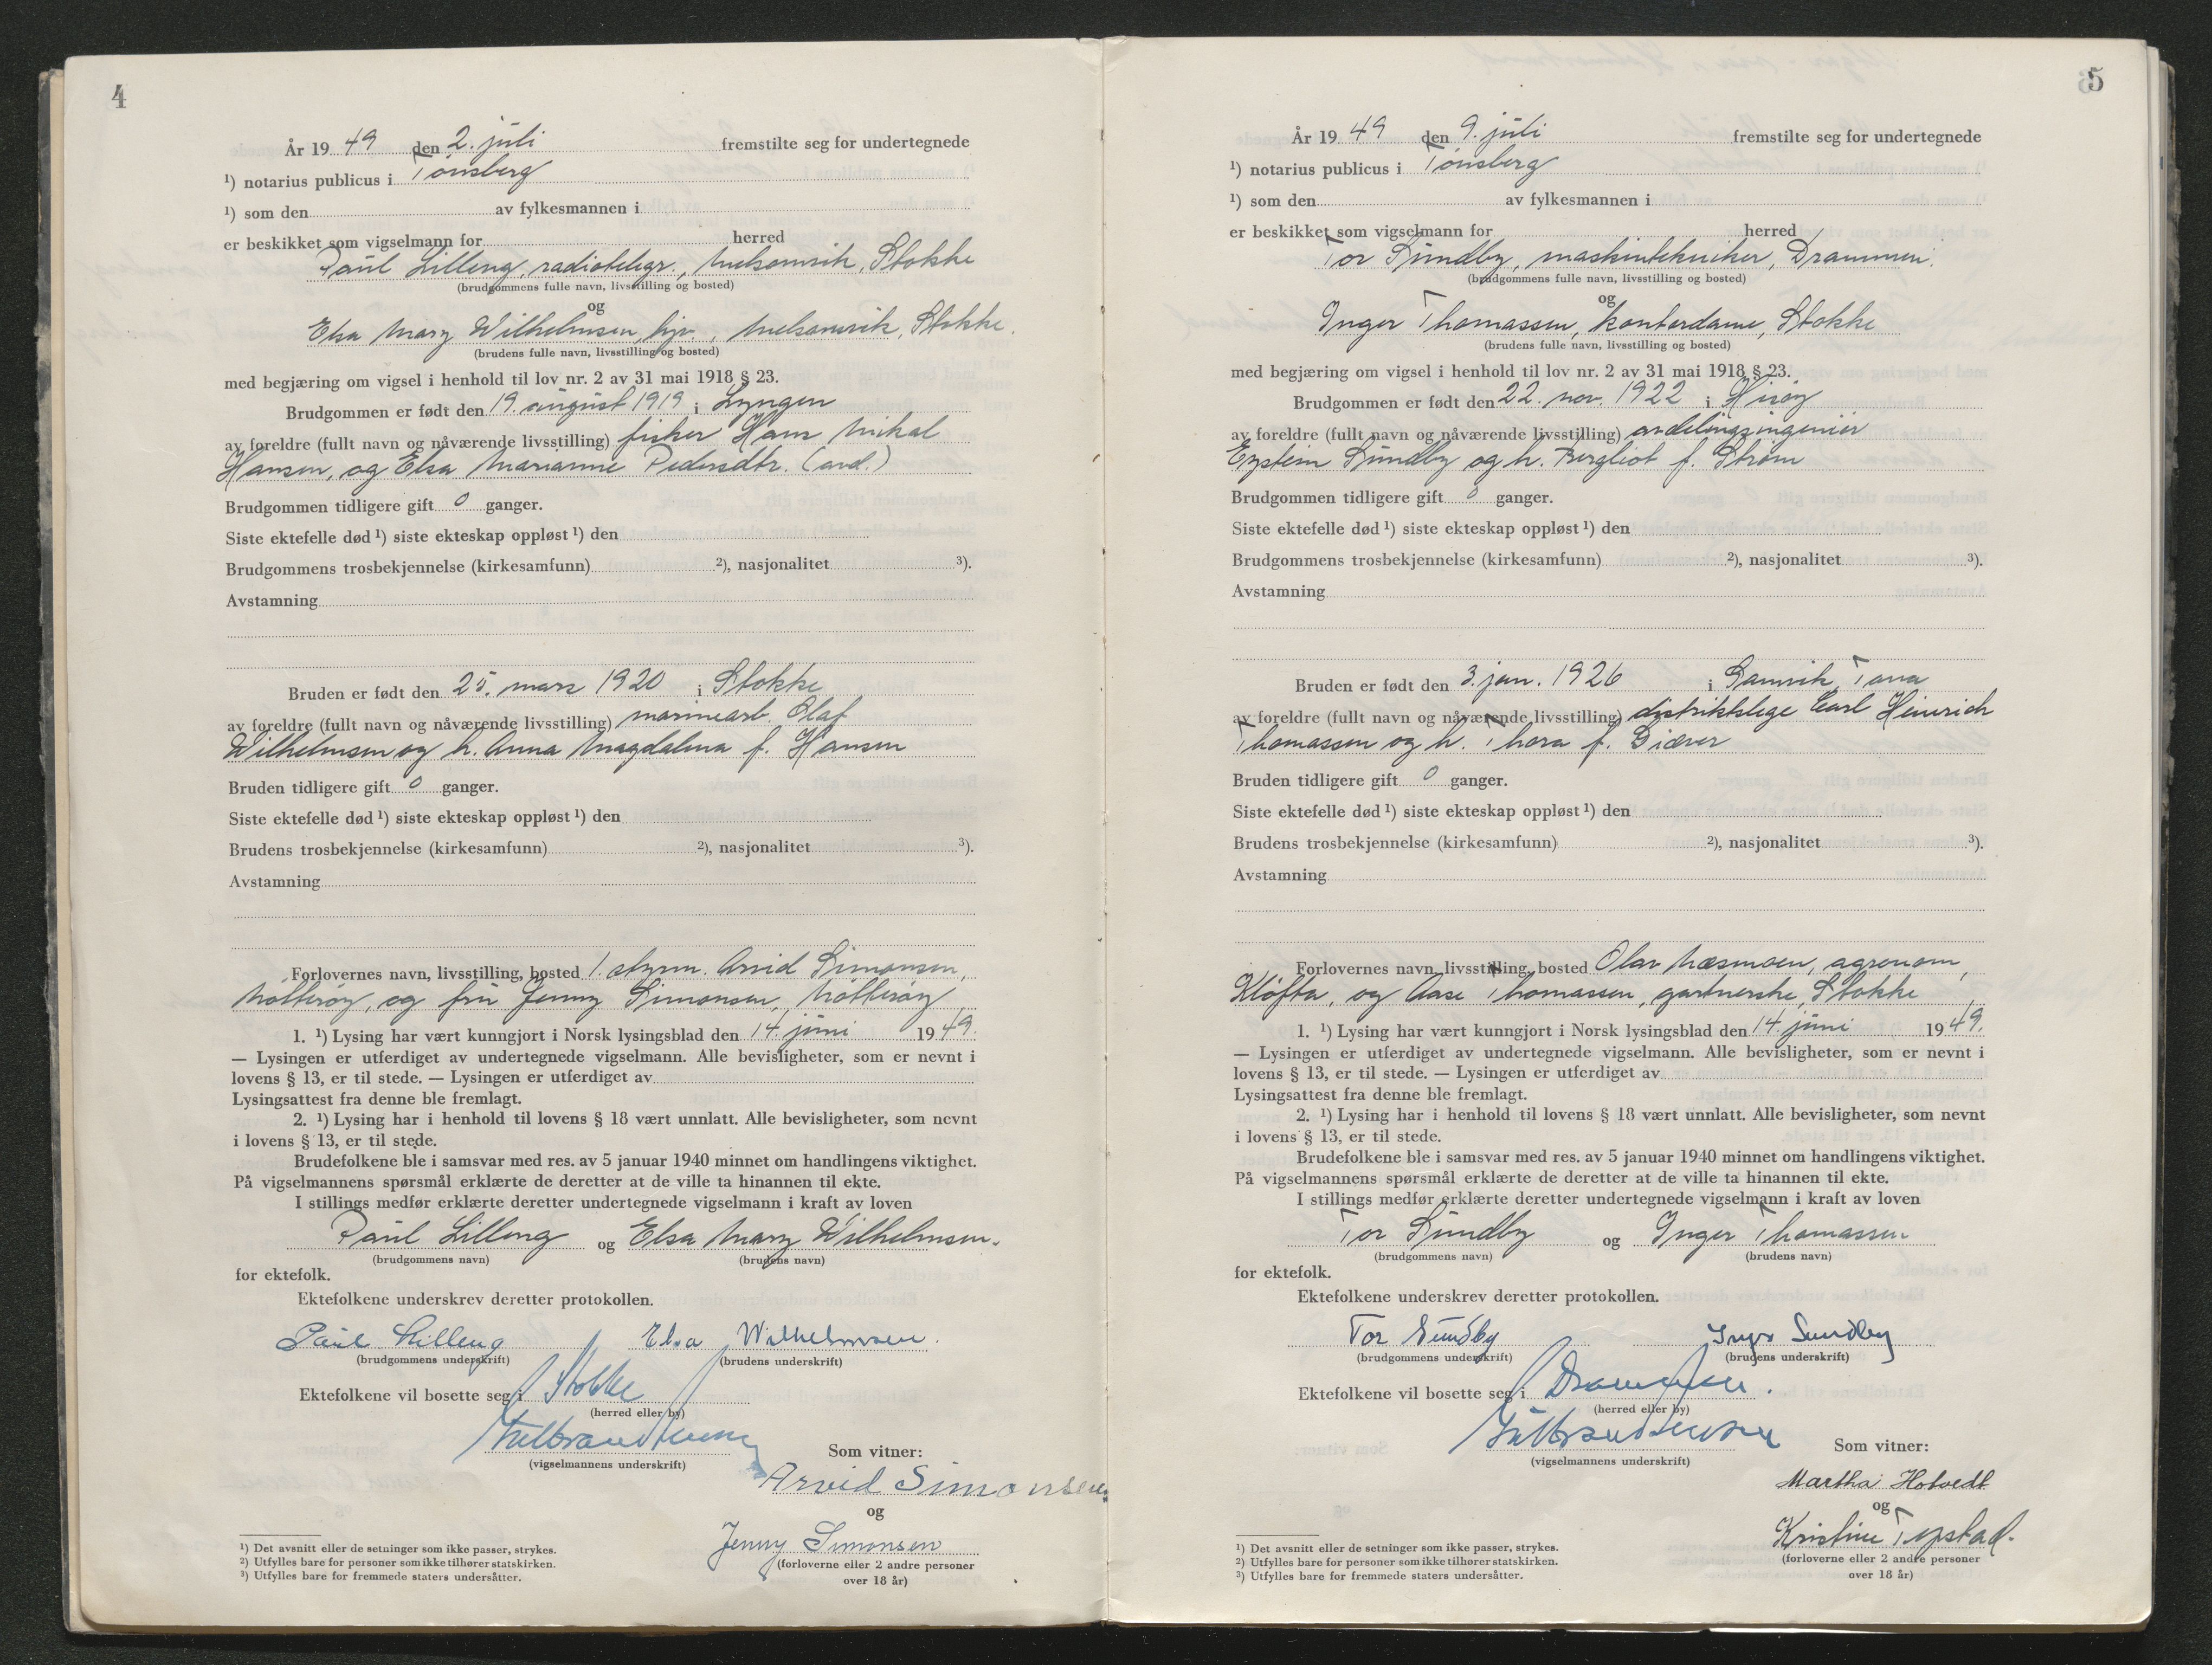 4
År 19 49 den 2. juli fremstilte seg for undertegnede
¹) notarius publicus i Tønsberg
¹) som den av fylkesmannen i
er beskikket som vigselmann for herred
Paul Lilleng, radiotelegr., Melsomvik, Stokke
(brudgommens fulle navn, livsstilling og bosted)
og
Elsa Mary Wilhelmsen, hjv., Melsomvik, Stokke.
(brudens fulle navn, livsstilling og bosted)
med begjæring om vigsel i henhold til lov nr. 2 av 31 mai 1918 § 23.
Brudgommen er født den 19. august 1919 i Lyngen
av foreldre (fullt navn og nåværende livsstilling) fisker Hans Mikal
Hansen, og Elsa Marianne Pedersdtr. (avd.)
Brudgommen tidligere gift 0 ganger.
Siste ektefelle død ¹) siste ekteskap oppløst ¹) den
Brudgommens trosbekjennelse (kirkesamfunn) ²), nasjonalitet ³).
Avstamning
Bruden er født den 25. mars 1920 i Stokke
av foreldre (fullt navn og nåværende livsstilling) marinearb. Olaf
Wilhelmsen og h. Anna Magdalena f. Hansen
Bruden tidligere gift 0 ganger.
Siste ektefelle død ¹) siste ekteskap oppløst ¹) den
Brudens trosbekjennelse (kirkesamfunn) ²), nasjonalitet ³).
Avstamning
Forlovernes navn, livsstilling, bosted 1. styrm. Arvid Simonsen,
Nøtterøy, og fru Jenny Simonsen, Nøtterøy
1. ¹) Lysing har vært kunngjort i Norsk lysingsblad den 14. juni 19 49.
— Lysingen er utferdiget av undertegnede vigselmann. Alle bevisligheter, som er nevnt i
lovens § 13, er til stede. — Lysingen er utferdiget av
Lysingsattest fra denne ble fremlagt.
2. ¹) Lysing har i henhold til lovens § 18 vært unnlatt. Alle bevisligheter, som nevnt
i lovens § 13, er til stede.
Brudefolkene ble i samsvar med res. av 5 januar 1940 minnet om handlingens viktighet.
På vigselmannens spørsmål erklærte de deretter at de ville ta hinannen til ekte.
I stillings medfør erklærte deretter undertegnede vigselmann i kraft av loven
Paul Lilleng og Elsa Mary Wilhelmsen.
(brudgommens navn) (brudens navn)
for ektefolk.
Ektefolkene underskrev deretter protokollen.
Paul Lilleng Elsa Wilhelmsen.
(brudgommens underskrift) (brudens underskrift)
Ektefolkene vil bosette seg i Stokke
(herred eller by)
Gulbrandsen
(vigselmannens underskrift)
Som vitner:
Arvid Simonsen
og
Jenny Simonsen
(forloverne eller 2 andre personer
over 18 år)
¹) Det avsnitt eller de setninger som ikke passer, strykes.
²) Utfylles bare for personer som ikke tilhører statskirken.
³) Utfylles bare for fremmede staters undersåtter.
5
År 19 49 den 9. juli fremstilte seg for undertegnede
¹) notarius publicus i Tønsberg
¹) som den av fylkesmannen i
er beskikket som vigselmann for herred
Tor Sundby, maskintekniker, Drammen.
(brudgommens fulle navn, livsstilling og bosted)
og
Inger Thomassen, kontordame, Stokke
(brudens fulle navn, livsstilling og bosted)
med begjæring om vigsel i henhold til lov nr. 2 av 31 mai 1918 § 23.
Brudgommen er født den 22. nov. 1922 i Hisøy
av foreldre (fullt navn og nåværende livsstilling) avdelingsingeniør
Eystein Sundby og h. Bergliot f. Strøm
Brudgommen tidligere gift 0 ganger.
Siste ektefelle død ¹) siste ekteskap oppløst ¹) den
Brudgommens trosbekjennelse (kirkesamfunn) ²), nasjonalitet ³).
Avstamning
Bruden er født den 3. jan. 1926 i Tana
av foreldre (fullt navn og nåværende livsstilling) distriktslege Carl Heinrich
Thomassen og h. Thora f. Giæver
Bruden tidligere gift 0 ganger.
Siste ektefelle død ¹) siste ekteskap oppløst ¹) den
Brudens trosbekjennelse (kirkesamfunn) ²), nasjonalitet ³).
Avstamning
Forlovernes navn, livsstilling, bosted Olav Næsmoen, agronom,
Kløfta, og Aase Thomassen, gartnerske, Stokke
1. ¹) Lysing har vært kunngjort i Norsk lysingsblad den 14. juni 19 49.
— Lysingen er utferdiget av undertegnede vigselmann. Alle bevisligheter, som er nevnt i
lovens § 13, er til stede. — Lysingen er utferdiget av
Lysingsattest fra denne ble fremlagt.
2. ¹) Lysing har i henhold til lovens § 18 vært unnlatt. Alle bevisligheter, som nevnt
i lovens § 13, er til stede.
Brudefolkene ble i samsvar med res. av 5 januar 1940 minnet om handlingens viktighet.
På vigselmannens spørsmål erklærte de deretter at de ville ta hinannen til ekte.
I stillings medfør erklærte deretter undertegnede vigselmann i kraft av loven
Tor Sundby og Inger Thomassen
(brudgommens navn) (brudens navn)
for ektefolk.
Ektefolkene underskrev deretter protokollen.
Tor Sundby Inger Sundby
(brudgommens underskrift) (brudens underskrift)
Ektefolkene vil bosette seg i Drammen.
(herred eller by)
Gulbrandsen
(vigselmannens underskrift)
Som vitner:
Martha Hotvedt
og
Kristine Tepstad.
(forloverne eller 2 andre personer
over 18 år)
¹) Det avsnitt eller de setninger som ikke passer, strykes.
²) Utfylles bare for personer som ikke tilhører statskirken.
³) Utfylles bare for fremmede staters undersåtter.